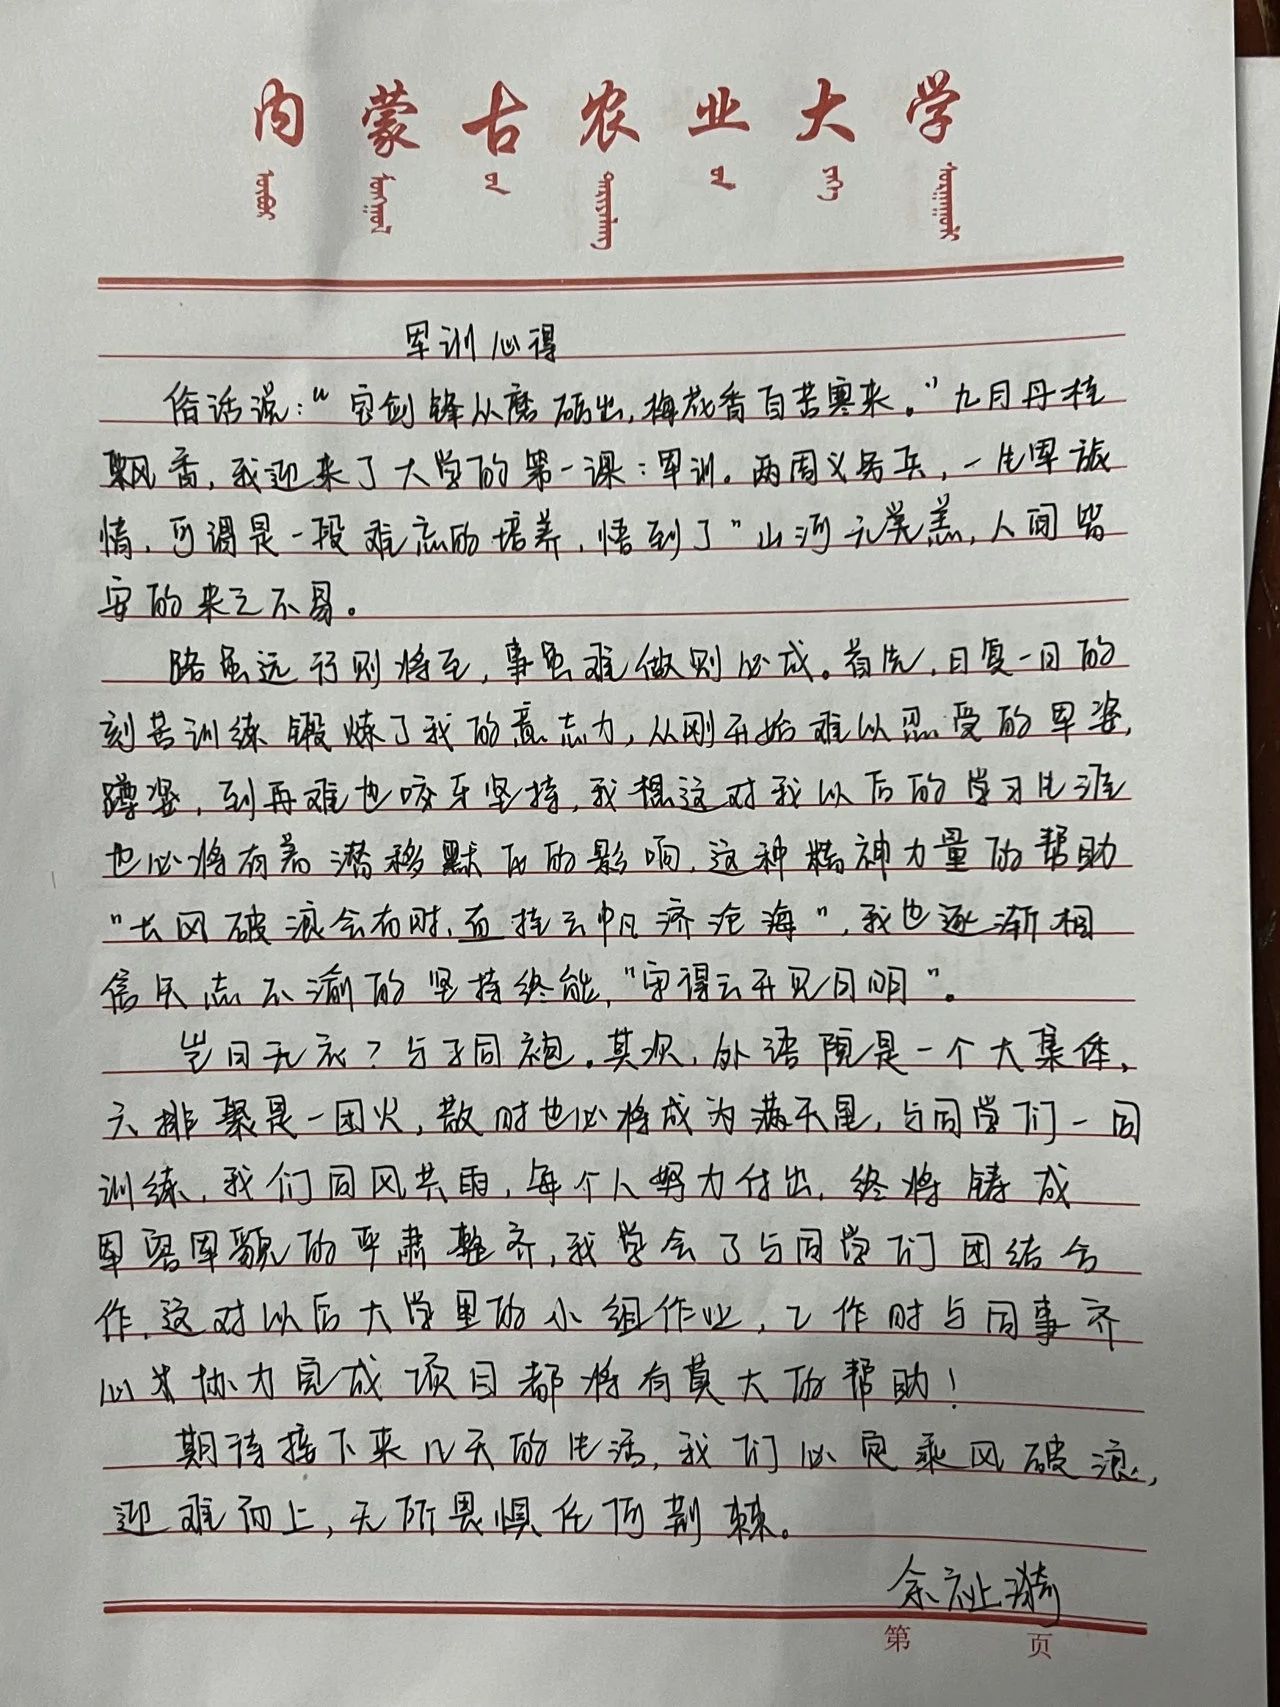 内蒙古农业大学
军训心得
俗话说：“宝剑锋从磨砺出，梅花香自苦寒来。”九月丹桂
飘香，我迎来了大学的第一课：军训。两周义务兵，一生军旅
情，可谓是一段难忘的培养，悟到了”山河无恙，人间皆
安的来之不易。
路虽远行则将至，事虽难做则必成。首先，日复一日的
刻苦训练锻炼了我的意志力，从刚开始难以忍受的军姿，
蹲姿，到再难也咬牙坚持，我想这对我以后的学习生涯
也必将有着潜移默化的影响，这种精神力量的帮助
“长风破浪会有时，直挂云帆济沧海”，我也逐渐相
信矢志不渝的坚持终能，“守得云开见月明”。
岂曰无衣？与子同袍。其次，外语院是一个大集体，
六排聚是一团火，散时也必将成为满天星，与同学们一同
训练，我们同风共雨，每个人努力付出，终将铸成
军容军貌的严肃整齐，我学会了与同学们团结合
作，这对以后大学里的小组作业，工作时与同事齐
心协力完成项目都将有莫大的帮助！
期待接下来几天的生活，我们必定乘风破浪，
迎难而上，无所畏惧任何荆棘。
余祉漪
第 页